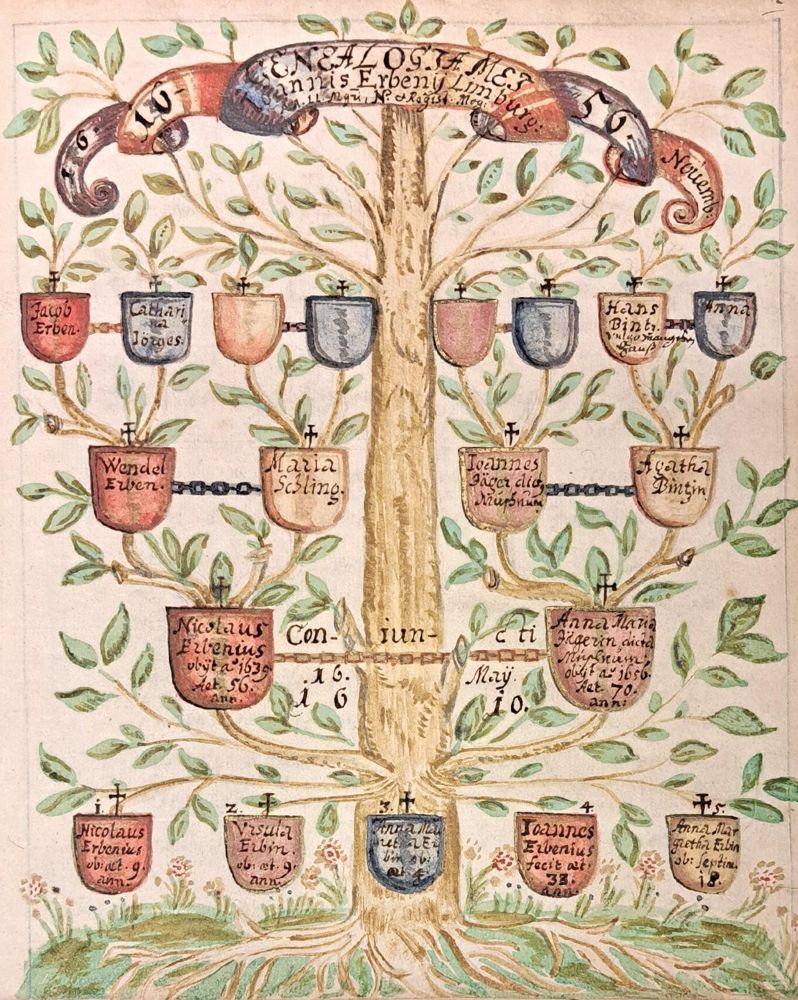 GENEALOGIA MEI
Ioannis Erbenij Limburg:
16 10 56 Nouemb.
Iacob
Erben.
Cathari
na
Iörges.
Hans
Bintz
Anna
Wendel
Erben.
Maria
Schling.
Ioannes
Jäger dict9
Agatha
Bintzin
Nicolaus
Erbenius
obijt aº 1639
Aet. 56.
ann.
Con- iun- cti
.16. Maÿ.
16 10.
Anna Maria
Jägerin dicta
obijt aº 1656.
Aet. 70.
ann:
1. 2. 3. 4. 5.
Nicolaus
Erbenius
ob: aet. 9.
ann.
Vrsula
Erbin
ob: æt. 9.
ann.
Anna Ma
Er
bin ob:
Ioannes
Erbenius
fecit æt.
38.
ann.
Anna Mar
gretha Erbin
ob: septim.
18.